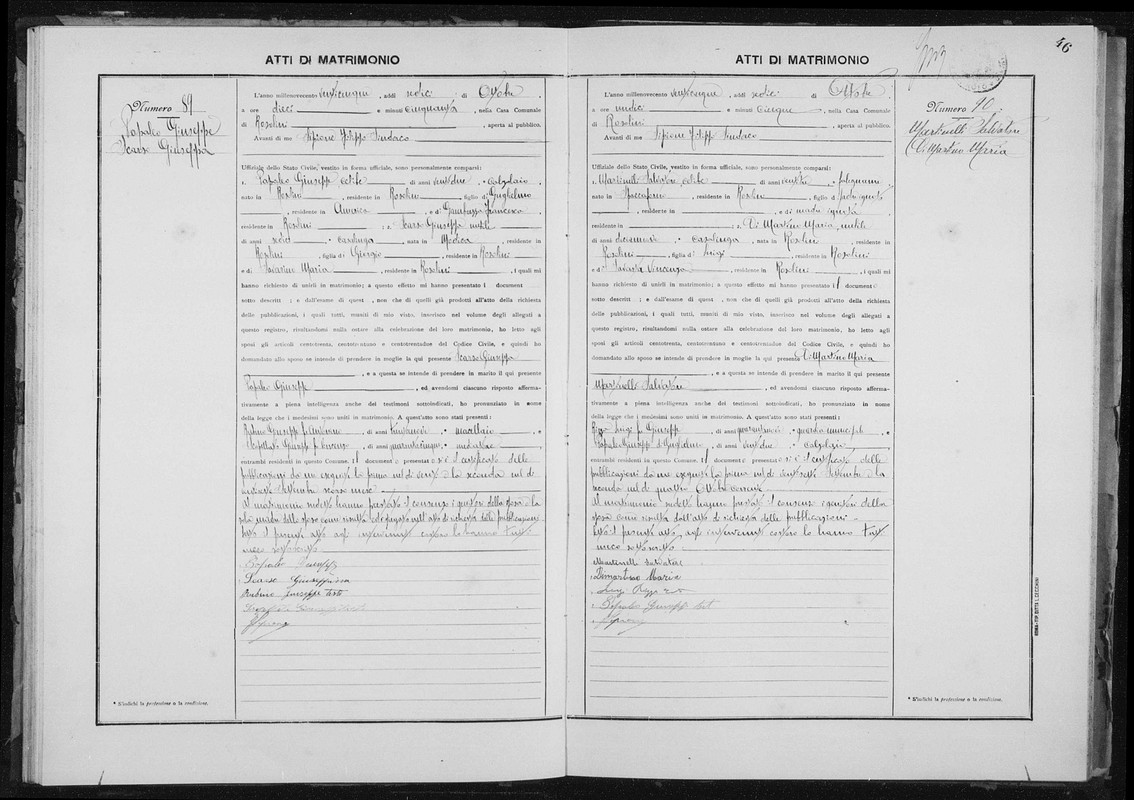 46
ATTI DI MATRIMONIO
Numero 89
Papaleo Giuseppe
Scarso Giuseppa
L'anno millenovecento venticinque, addì sedici di Ottobre,
a ore dieci e minuti cinquanta, nella Casa Comunale
di Rosolini, aperta al pubblico.
Avanti di me Sipione Filippo Sindaco
Uffiziale dello Stato Civile, vestito in forma ufficiale, sono personalmente comparsi:
1. Papaleo Giuseppe celibe, di anni ventidue, * calzolaio,
nato in Rosolini, residente in Rosolini, figlio di Guglielmo
, residente in America, e di Francesca,
residente in Rosolini; 2. Scarso Giuseppa nubile,
di anni sedici, * casalinga, nata in Modica, residente in
Rosolini, figlia di Giorgio, residente in Rosolini,
e di Maria, residente in Rosolini, i quali mi
hanno richiesto di unirli in matrimonio; a questo effetto mi hanno presentato i document
sotto descritt ; e dall'esame di quest , non che di quelli già prodotti all'atto della richiesta
delle pubblicazioni, i quali tutti, muniti di mio visto, inserisco nel volume degli allegati a
questo registro, risultandomi nulla ostare alla celebrazione del loro matrimonio, ho letto agli
sposi gli articoli centotrenta, centotrentuno e centotrentadue del Codice Civile, e quindi ho
domandato allo sposo se intende di prendere in moglie la qui presente Scarso Giuseppa
, e a questa se intende di prendere in marito il qui presente
Papaleo Giuseppe, ed avendomi ciascuno risposto afferma-
tivamente a piena intelligenza anche dei testimoni sottoindicati, ho pronunziato in nome
della legge che i medesimi sono uniti in matrimonio. A quest'atto sono stati presenti:
Giuseppe, di anni, *
Giuseppe, di anni quarantacinque, *
entrambi residenti in questo Comune. Il document presentat o si è il certificato delle
pubblicazioni da me eseguite la prima nel dì venti e la seconda nel dì
ventisette Settembre scorso mese.
Al matrimonio suddetto hanno prestato il consenso i genitori della sposa e la
sola madre dello sposo come risulta nell'atto di richiesta delle pubblicazioni
Letto il presente atto agli intervenuti costoro lo hanno tutti
meco sottoscritto
Papaleo Giuseppe
Scarso Giuseppina
Giuseppe teste
* S'indichi la professione o la condizione.
ATTI DI MATRIMONIO
Numero 90
Martinelli Salvatore
Di Martino Maria
L'anno millenovecento venticinque, addì sedici di Ottobre,
a ore undici e minuti cinque, nella Casa Comunale
di Rosolini, aperta al pubblico.
Avanti di me Sipione Filippo Sindaco
Uffiziale dello Stato Civile, vestito in forma ufficiale, sono personalmente comparsi:
1. Martinelli Salvatore celibe, di anni ventitre, * falegname,
nato in Spaccaforno, residente in Rosolini, figlio di padre ignoto
, residente in, e di madre ignota,
residente in; 2. Di Martino Maria, nubile
di anni diciannove, * casalinga, nata in Rosolini, residente in
Rosolini, figlia di Luigi, residente in Rosolini
e di Vincenza, residente in Rosolini, i quali mi
hanno richiesto di unirli in matrimonio; a questo effetto mi hanno presentato il document
sotto descritt ; e dall'esame di quest , non che di quelli già prodotti all'atto della richiesta
delle pubblicazioni, i quali tutti, muniti di mio visto, inserisco nel volume degli allegati a
questo registro, risultandomi nulla ostare alla celebrazione del loro matrimonio, ho letto agli
sposi gli articoli centotrenta, centotrentuno e centotrentadue del Codice Civile, e quindi ho
domandato allo sposo se intende di prendere in moglie la qui presente Di Martino Maria
, e a questa se intende di prendere in marito il qui presente
Martinelli Salvatore, ed avendomi ciascuno risposto afferma-
tivamente a piena intelligenza anche dei testimoni sottoindicati, ho pronunziato in nome
della legge che i medesimi sono uniti in matrimonio. A quest'atto sono stati presenti:
Rizza Luigi fu Giuseppe, di anni, * guardia municipale
Papaleo Giuseppe di Guglielmo, di anni ventidue, * calzolaio,
entrambi residenti in questo Comune. Il document presentat o si è il certificato delle
pubblicazioni da me eseguite la prima nel dì ventisette Settembre e la
seconda nel dì quattro Ottobre corrente
Al matrimonio suddetto hanno prestato il consenso i genitori della
sposa come risulta dall'atto di richiesta delle pubblicazioni.
Letto il presente atto agli intervenuti costoro lo hanno tutti
meco sottoscritto
Martinelli Salvatore
Dimartino Maria
Luigi Rizza
Papaleo Giuseppe test
* S'indichi la professione o la condizione.